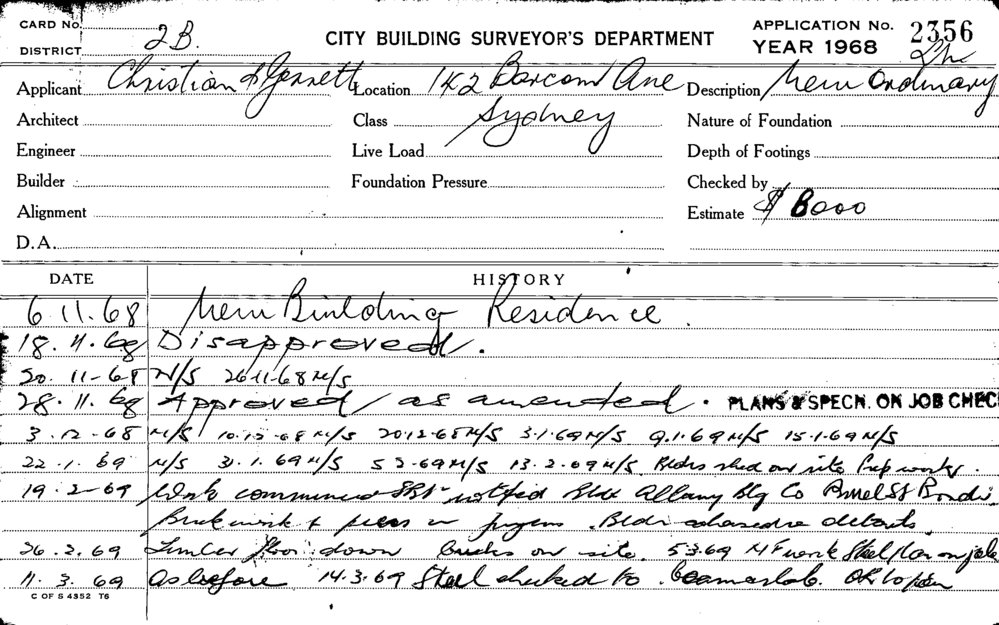 CARD No.
DISTRICT 2B.
CITY BUILDING SURVEYOR'S DEPARTMENT
APPLICATION No. 2356
YEAR 1968
Applicant Christian & Jennett Location 142 Barcom Ave Description New Ordinary
Architect Class Sydney Nature of Foundation
Engineer Live Load Depth of Footings
Builder Foundation Pressure Checked by
Alignment Estimate $ 8000
D.A.
DATE HISTORY
6.11.68 New Building Residence.
18.11.68 Disapproved.
20.11-68 N/S 26-11-68 N/S
28.11.68 Approved / as amended. PLANS & SPECN. ON JOB CHEC
3-12-68 N/S 10-12-68 N/S 20-12-68 N/S 3-1-69 N/S 9.1.69 N/S 15-1-69 N/S
22.1.69 N/S 31.1.69 N/S 5 2-69 N/S 13.2.69 N/S Bldrs shed on site Prep work.
19.2-69 Work commenced notified Albany Blg Co St Bondi
Brickwork & piers in details
26.2.69 Timber floor down on site. 5 3 69 work Steel on job
11.3.69 As before 14.3.69 Steel checked to beam slab. OK to pour
C OF S 4352 T6